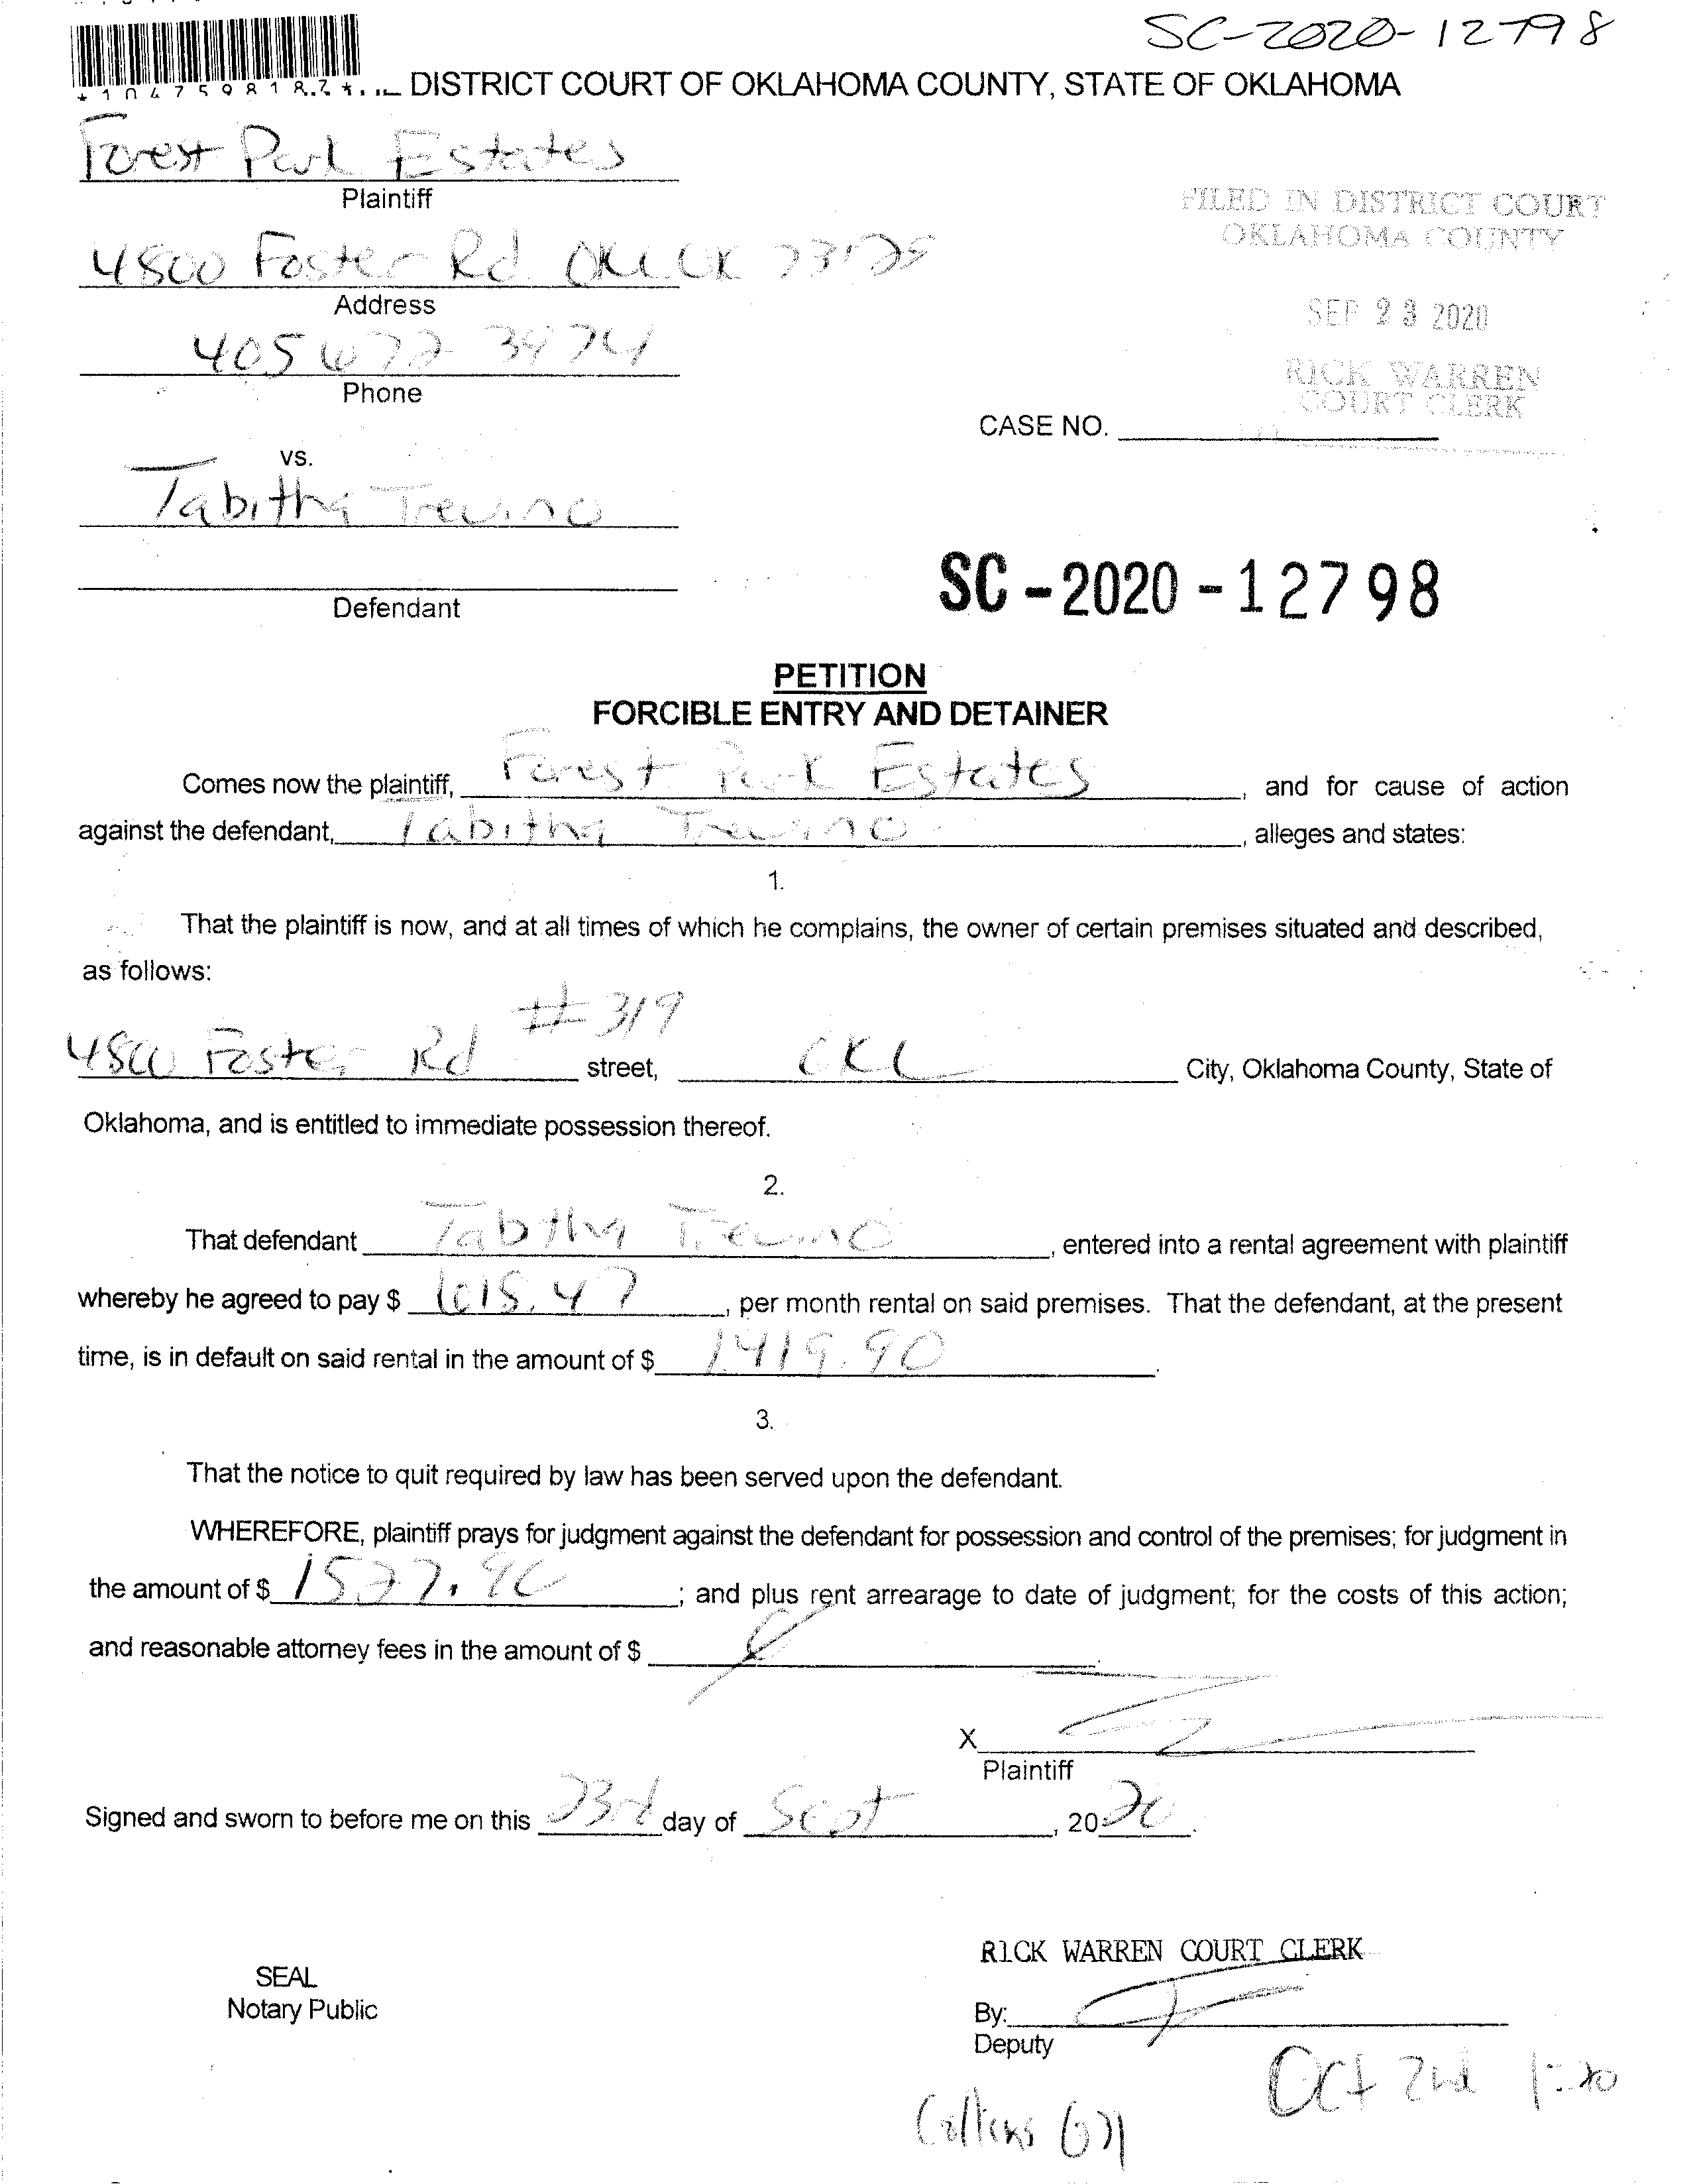 SC-2020-12798
*1047598182*
DISTRICT COURT OF OKLAHOMA COUNTY, STATE OF OKLAHOMA
Forest Park Estates
Plaintiff
FILED IN DISTRICT COURT
OKLAHOMA COUNTY
4800 Foster Rd OKC OK 73129
Address
SEP 23 2020
405 672 3974
Phone
RICK WARREN
COURT CLERK
CASE NO.
vs.
Tabitha Trevino
Defendant
SC-2020-12798
PETITION
FORCIBLE ENTRY AND DETAINER
Comes now the plaintiff, Forest Park Estates, and for cause of action
against the defendant, Tabitha Trevino, alleges and states:
1.
That the plaintiff is now, and at all times of which he complains, the owner of certain premises situated and described,
as follows:
#319
4800 Foster Rd street, OKC City, Oklahoma County, State of
Oklahoma, and is entitled to immediate possession thereof.
2.
That defendant Tabitha Trevino, entered into a rental agreement with plaintiff
whereby he agreed to pay $ , per month rental on said premises. That the defendant, at the present
time, is in default on said rental in the amount of $ 1419.90.
3.
That the notice to quit required by law has been served upon the defendant.
WHEREFORE, plaintiff prays for judgment against the defendant for possession and control of the premises; for judgment in
the amount of $ 1577.90; and plus rent arrearage to date of judgment; for the costs of this action;
and reasonable attorney fees in the amount of $
X
Plaintiff
Signed and sworn to before me on this 23rd day of Sept, 2020.
RICK WARREN COURT CLERK
SEAL
Notary Public
By:
Deputy
Oct 2nd 1:30
Collins